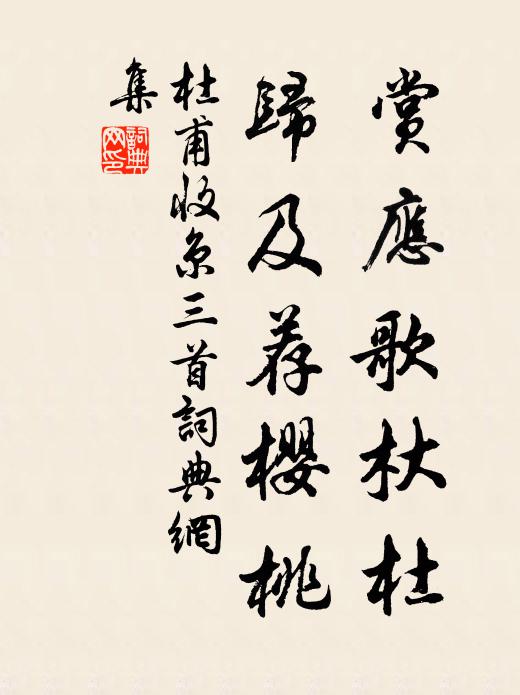 賞應歌杕杜
歸及荐櫻桃
杜甫收京三首詞典網
集
詞典网印